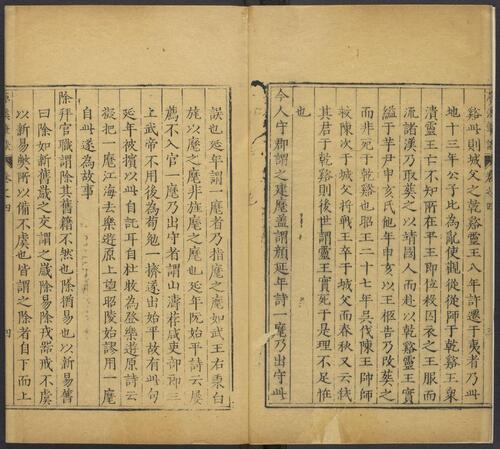 谿此則城父之乾谿靈王八年許遷于夷者乃此
地十三年公子比為亂使觀從從師于乾谿王衆
潰靈王亡不知所在平王即位殺囚衣之王服而
流諸漢乃取葬之以靖國人而赴以乾谿靈王實
縊于芊尹申亥氏他年申亥以王柩告乃改葬之
而非死于乾谿也昭王二十七年吳伐陳王帥師
救陳次于城父将戰王卒于城父而春秋又云弒
其君于乾谿則後世謂靈王實死于是理不足恠
也
今人守郡謂之建麾盖謂顔延年詩一麾乃出守此
誤也延年謂一麾者乃指麾之麾如武王右秉白
旄以麾之麾非旌麾之麾也延年阮始平詩云屢
薦不入官一麾乃出守者謂山濤荐咸吏部郎三
上武帝不用後為荀勉一擠遂出始平故有此句
延年被擯以此自託耳自杜牧為登樂遊原詩云
擬把一麾江海去樂遊原上望昭陵始謬用一麾
自此遂為故事
除拜官職謂除其舊籍不然也除猶易也以新易舊
曰除如新舊歲之交謂之歲除易除戎器戒不虞
以新易弊所以備不虞也皆謂之除者自下而上